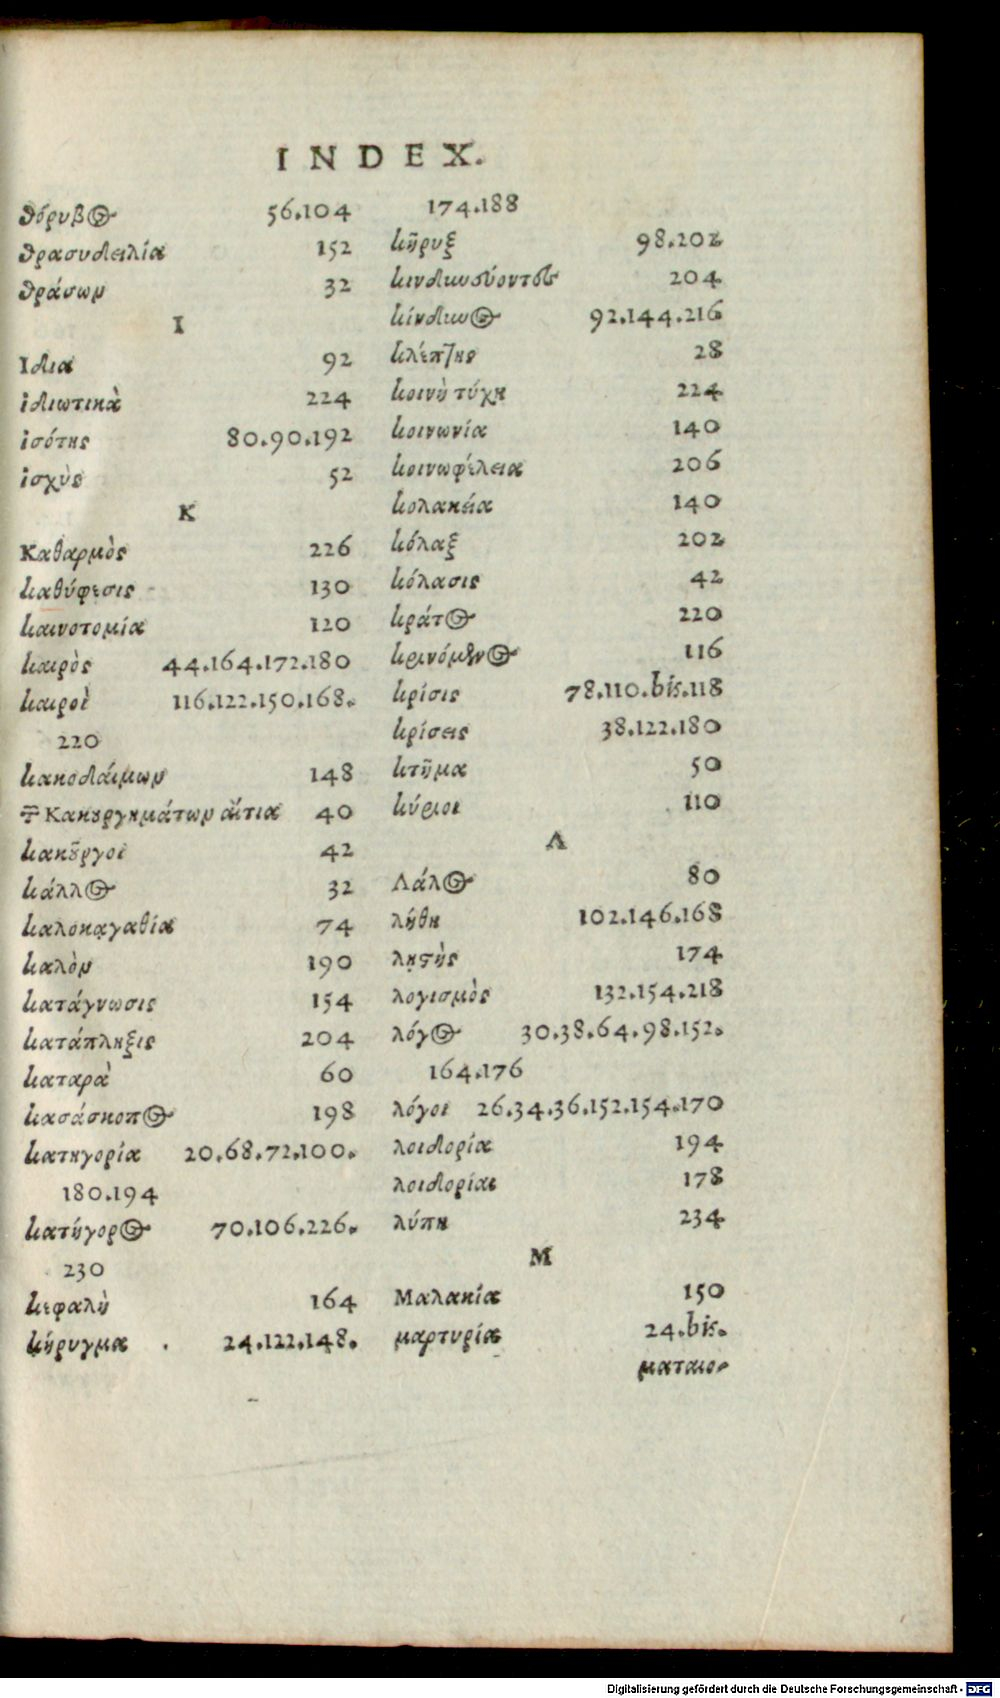 INDEX.
θόρυβος 56.104
θρασυδειλία 152
θράσων 32
I
Ιδια 92
ἰδιωτικὰ 224
ἰσότης 80.90.192
ἰσχὺς 52
K
Καθαρμὸς 226
καθύφεσις 130
καινοτομία 120
καιρὸς 44.164.172.180
καιροὶ 116.122.150.168.
220
κακοδαίμων 148
Κακουργημάτων αἴτια 40
κακοῦργοι 42
κάλλος 32
καλοκαγαθία 74
καλὸν 190
κατάγνωσις 154
κατάπληξις 204
καταρὰ 60
κασάσκοπος 198
κατηγορία 20.68.72.100.
180.194
κατήγορος 70.106.226.
230
κεφαλὴ 164
κήρυγμα 24.122.148.
174.188
κῆρυξ 98.202
κινδυνεύοντες 204
κίνδυνος 92.144.216
κλέπτης 28
κοινὴ τύχη 224
κοινωνία 140
κοινωφέλεια 206
κολακεία 140
κόλαξ 202
κόλασις 42
κράτος 220
κρινόμενος 116
κρίσις 78.110.bis.118
κρίσεις 38.122.180
κτῆμα 50
κύριοι 110
Λ
Λάλος 80
λήθη 102.146.168
λῃστὴς 174
λογισμὸς 132.154.218
λόγος 30.38.64.98.152.
164.176
λόγοι 26.34.36.152.154.170
λοιδορία 194
λοιδορίαι 178
λύπη 234
M
Μαλακία 150
μαρτυρία 24.bis.
ματαιο-
Digitalisierung gefördert durch die Deutsche Forschungsgemeinschaft - DFG